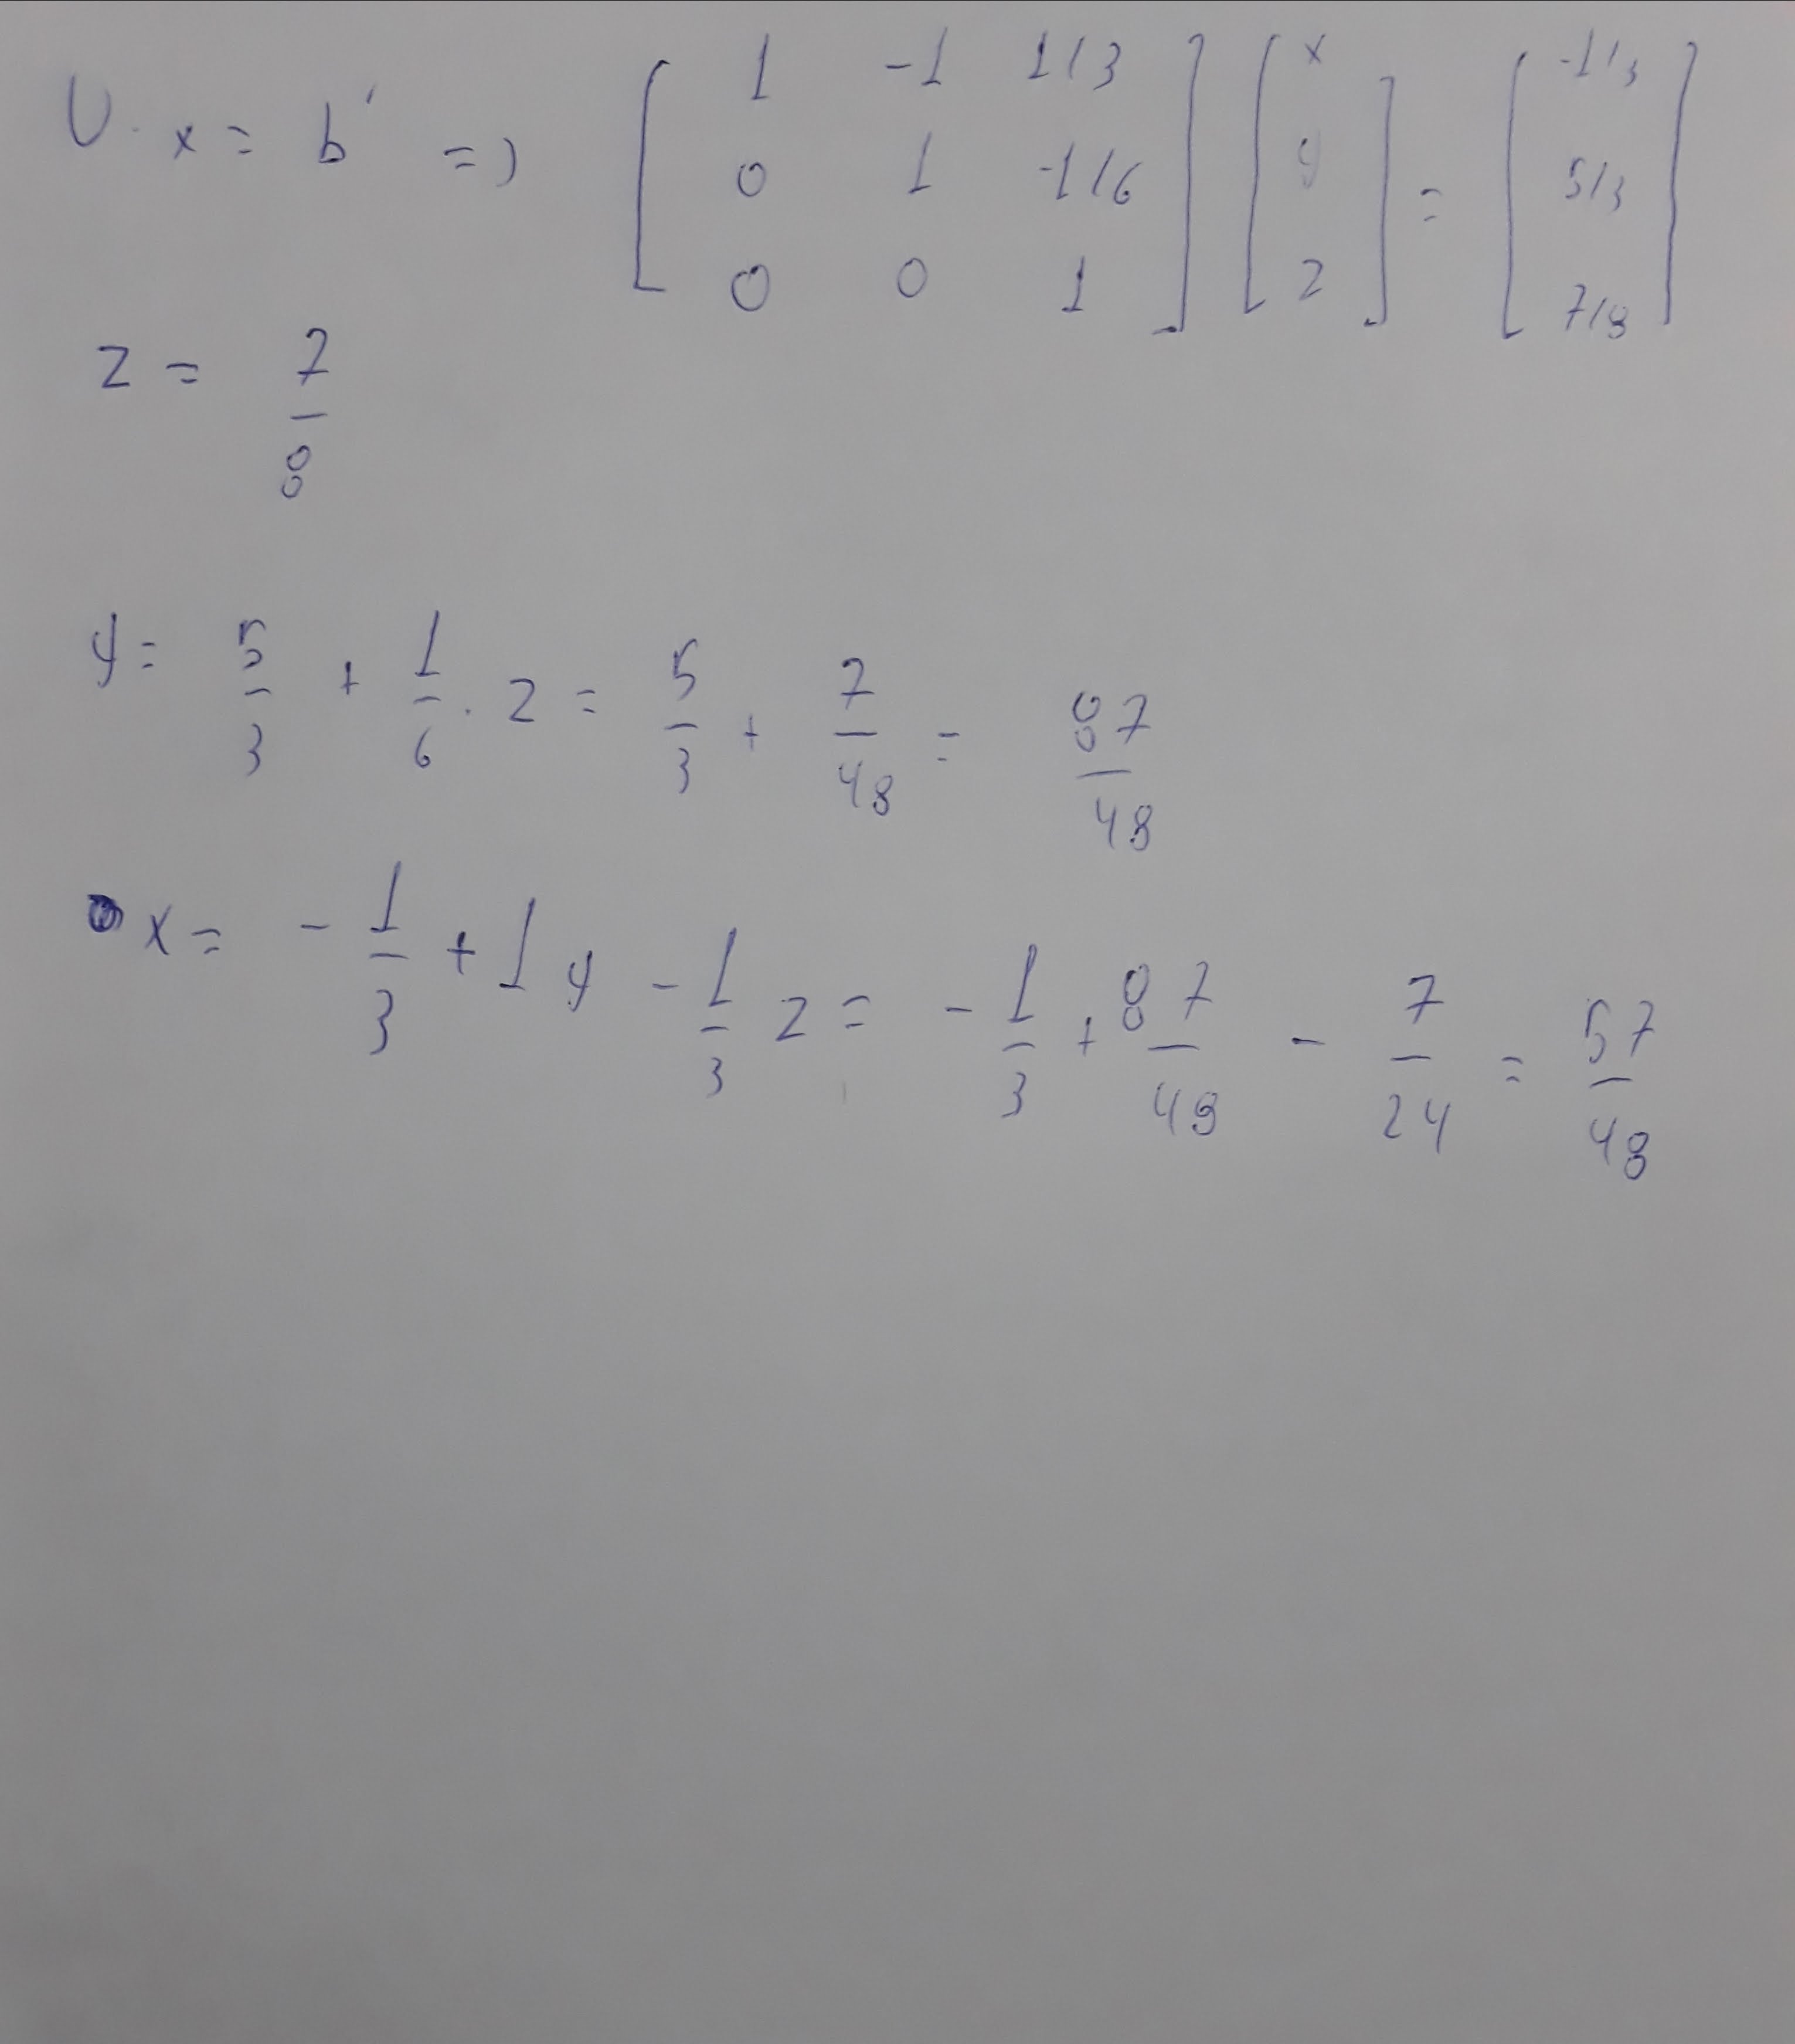 U. x = b' => [ 1 -1 1/3 ; 0 1 -1/6 ; 0 0 1 ] [ x ; y ; z ] = [ -1/3 ; 5/3 ; 7/8 ]
z = 7/8
y = 5/3 + 1/6 . z = 5/3 + 7/48 = 87/48
x = - 1/3 + 1 y - 1/3 z = - 1/3 + 87/48 - 7/24 = 57/48